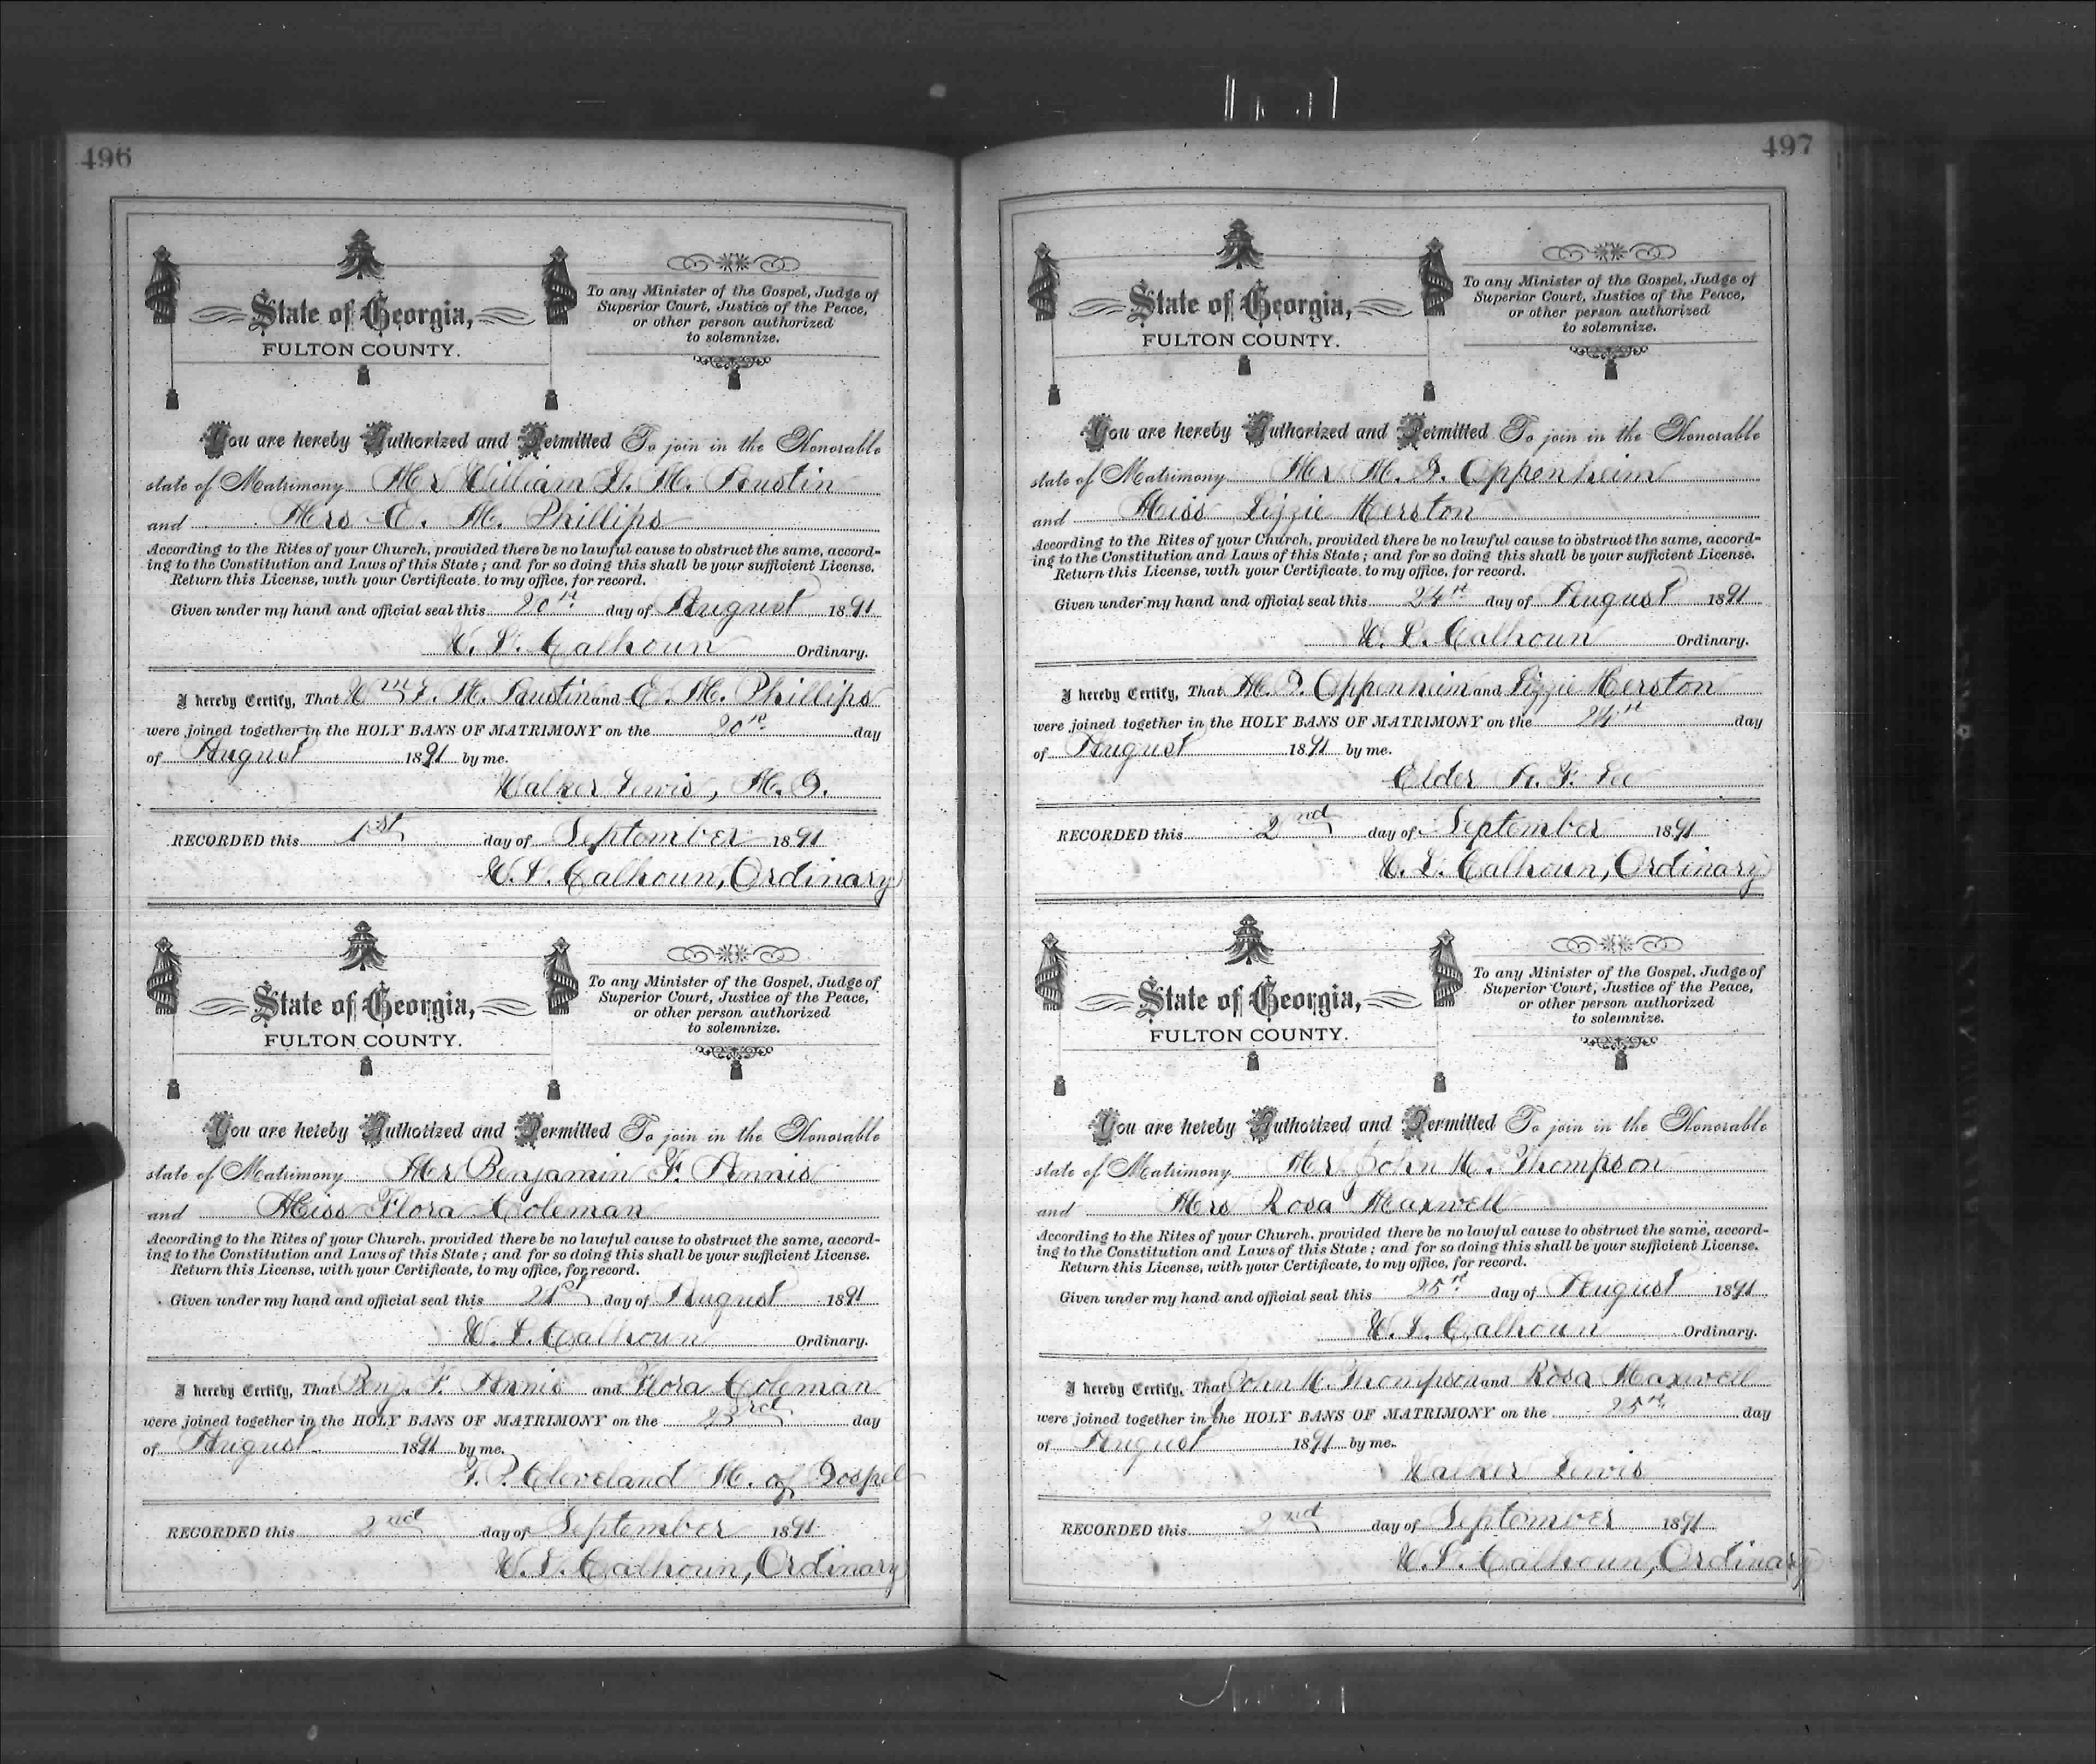 496
State of Georgia,
FULTON COUNTY.
To any Minister of the Gospel, Judge of
Superior Court, Justice of the Peace,
or other person authorized
to solemnize.
You are hereby Authorized and Permitted To join in the Honorable
state of Matrimony Mr William H. M.
and Mrs E. M. Phillips
According to the Rites of your Church, provided there be no lawful cause to obstruct the same, accord-
ing to the Constitution and Laws of this State; and for so doing this shall be your sufficient License.
Return this License, with your Certificate, to my office, for record.
Given under my hand and official seal this 20th day of August 1891
W. L. Calhoun Ordinary.
I hereby Certify, That Wm M. and E. M. Phillips
were joined together in the HOLY BANS OF MATRIMONY on the 20th day
of August 1891 by me.
Walker Lewis, M. G.
RECORDED this 1st day of September 1891
W. L. Calhoun, Ordinary
State of Georgia,
FULTON COUNTY.
To any Minister of the Gospel, Judge of
Superior Court, Justice of the Peace,
or other person authorized
to solemnize.
You are hereby Authorized and Permitted To join in the Honorable
state of Matrimony Mr Benjamin F. Annis
and Miss Flora Coleman
According to the Rites of your Church, provided there be no lawful cause to obstruct the same, accord-
ing to the Constitution and Laws of this State; and for so doing this shall be your sufficient License.
Return this License, with your Certificate, to my office, for record.
Given under my hand and official seal this 21st day of August 1891
W. L. Calhoun Ordinary.
I hereby Certify, That Benj. F. Annis and Flora Coleman
were joined together in the HOLY BANS OF MATRIMONY on the 23rd day
of August 1891 by me.
Cleveland M. of Gospel
RECORDED this 2nd day of September 1891
W. L. Calhoun, Ordinary
497
State of Georgia,
FULTON COUNTY.
To any Minister of the Gospel, Judge of
Superior Court, Justice of the Peace,
or other person authorized
to solemnize.
You are hereby Authorized and Permitted To join in the Honorable
state of Matrimony Mr M. Oppenheim
and Miss Lizzie Merston
According to the Rites of your Church, provided there be no lawful cause to obstruct the same, accord-
ing to the Constitution and Laws of this State; and for so doing this shall be your sufficient License.
Return this License, with your Certificate, to my office, for record.
Given under my hand and official seal this 24th day of August 1891
W. L. Calhoun Ordinary.
I hereby Certify, That M. Oppenheim and Lizzie Merston
were joined together in the HOLY BANS OF MATRIMONY on the 24th day
of August 1891 by me.
Elder F. Lee
RECORDED this 2nd day of September 1891
W. L. Calhoun, Ordinary
State of Georgia,
FULTON COUNTY.
To any Minister of the Gospel, Judge of
Superior Court, Justice of the Peace,
or other person authorized
to solemnize.
You are hereby Authorized and Permitted To join in the Honorable
state of Matrimony Mr John Thompson
and Mrs Rosa Maxwell
According to the Rites of your Church, provided there be no lawful cause to obstruct the same, accord-
ing to the Constitution and Laws of this State; and for so doing this shall be your sufficient License.
Return this License, with your Certificate, to my office, for record.
Given under my hand and official seal this 25th day of August 1891
W. L. Calhoun Ordinary.
I hereby Certify, That John Thompson and Rosa Maxwell
were joined together in the HOLY BANS OF MATRIMONY on the 25th day
of August 1891 by me.
Walker Lewis
RECORDED this 2nd day of September 1891
W. L. Calhoun, Ordinary